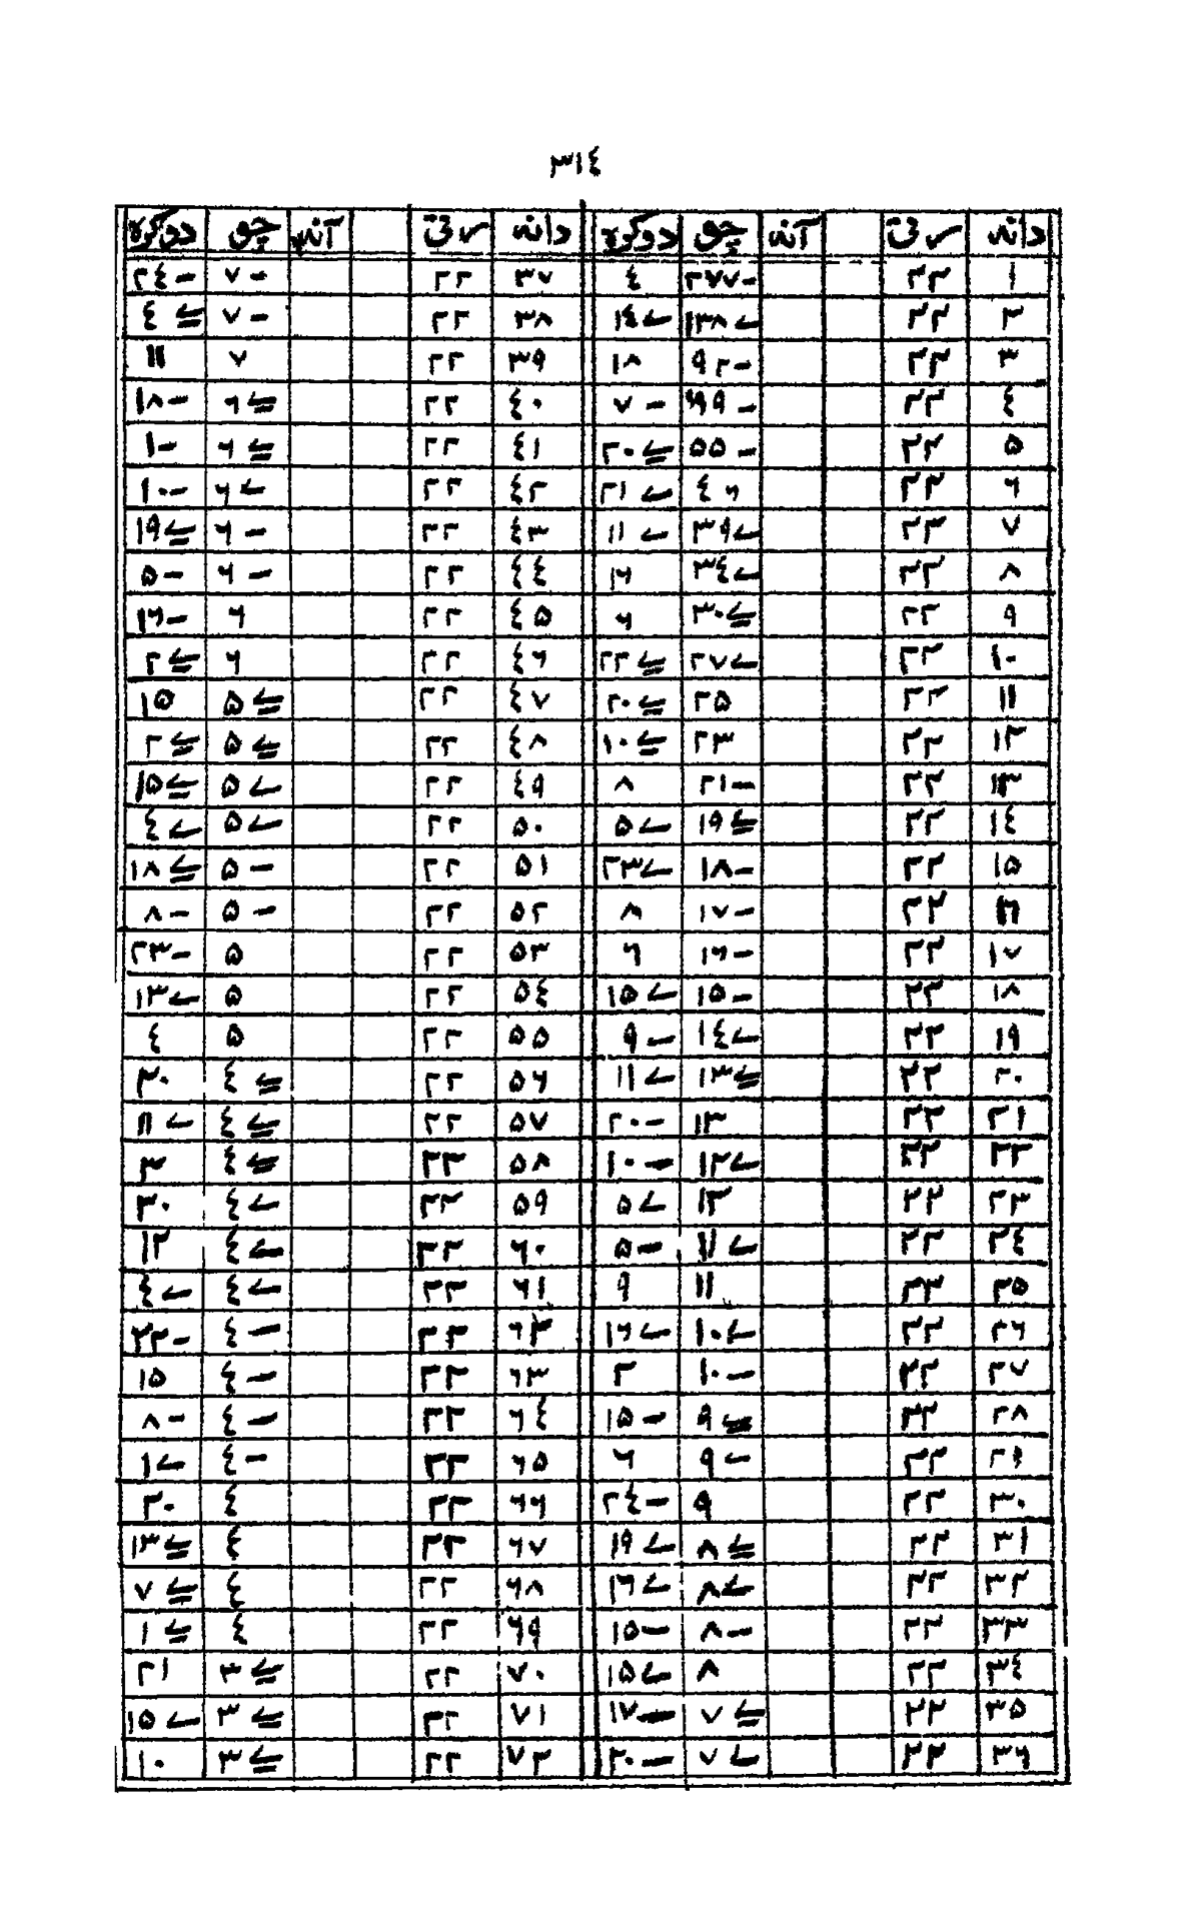 ٣١٤
دانه رتى آنه چو دوكره دانه رتى آنه چو دوكره
١ ٢٢ ٢٧٧- ٤ ٣٧ ٢٢ ٧- ٢٤-
٢ ٢٢ ١٣٨ے ١٤ے ٣٨ ٢٢ ٧- ٤ے=
٣ ٢٢ ٩٢- ١٨ ٣٩ ٢٢ ٧ ١١
٤ ٢٢ ٦٩- ٧- ٤٠ ٢٢ ٦ے= ١٨-
٥ ٢٢ ٥٥- ٢٠ے= ٤١ ٢٢ ٦ے= ١-
٦ ٢٢ ٤٦ ٢١ے ٤٢ ٢٢ ٦ے ١٠-
٧ ٢٢ ٣٩ے ١١ے ٤٣ ٢٢ ٦- ١٩ے=
٨ ٢٢ ٣٤ے ١٦ ٤٤ ٢٢ ٦- ٥-
٩ ٢٢ ٣٠ے= ٦ ٤٥ ٢٢ ٦ ١٦-
١٠ ٢٢ ٢٧ے ٢٢ے= ٤٦ ٢٢ ٦ ٢ے=
١١ ٢٢ ٢٥ ٢٠ے= ٤٧ ٢٢ ٥ے= ١٥
١٢ ٢٢ ٢٣ ١٠ے= ٤٨ ٢٢ ٥ے= ٢ے=
١٣ ٢٢ ٢١- ٨ ٤٩ ٢٢ ٥ے ١٥ے=
١٤ ٢٢ ١٩ے= ٥ے ٥٠ ٢٢ ٥ے ٤ے
١٥ ٢٢ ١٨- ٢٣ے ٥١ ٢٢ ٥- ١٨ے=
١٦ ٢٢ ١٧- ٨ ٥٢ ٢٢ ٥- ٨-
١٧ ٢٢ ١٦- ٦ ٥٣ ٢٢ ٥ ٢٣-
١٨ ٢٢ ١٥- ١٥ے ٥٤ ٢٢ ٥ ١٣ے
١٩ ٢٢ ١٤ے ٩- ٥٥ ٢٢ ٥ ٤
٢٠ ٢٢ ١٣ے= ١١ے ٥٦ ٢٢ ٤ے= ٢٠
٢١ ٢٢ ١٣ ٢٠- ٥٧ ٢٢ ٤ے= ١١ے
٢٢ ٢٢ ١٢ے ١٠- ٥٨ ٢٢ ٤ے= ٣
٢٣ ٢٢ ١٢ ٥ے ٥٩ ٢٢ ٤ے ٢٠
٢٤ ٢٢ ١١ے ٥- ٦٠ ٢٢ ٤ے ١٢
٢٥ ٢٢ ١١ ٩ ٦١ ٢٢ ٤ے ٤ے
٢٦ ٢٢ ١٠ے ١٦ے ٦٢ ٢٢ ٤- ٢٢-
٢٧ ٢٢ ١٠- ٢ ٦٣ ٢٢ ٤- ١٥
٢٨ ٢٢ ٩ے= ١٥- ٦٤ ٢٢ ٤- ٨-
٢٩ ٢٢ ٩ے ٦ ٦٥ ٢٢ ٤- ١ے
٣٠ ٢٢ ٩ ٢٤- ٦٦ ٢٢ ٤ ٢٠
٣١ ٢٢ ٨ے= ١٩ے ٦٧ ٢٢ ٤ ١٣ے=
٣٢ ٢٢ ٨ے ١٦ے ٦٨ ٢٢ ٤ ٧ے=
٣٣ ٢٢ ٨- ١٥- ٦٩ ٢٢ ٤ ١ے=
٣٤ ٢٢ ٨ ١٥ے ٧٠ ٢٢ ٣ے= ٢١
٣٥ ٢٢ ٧ے= ١٧- ٧١ ٢٢ ٣ے= ١٥ے
٣٦ ٢٢ ٧ے ٢٠- ٧٢ ٢٢ ٣ے= ١٠